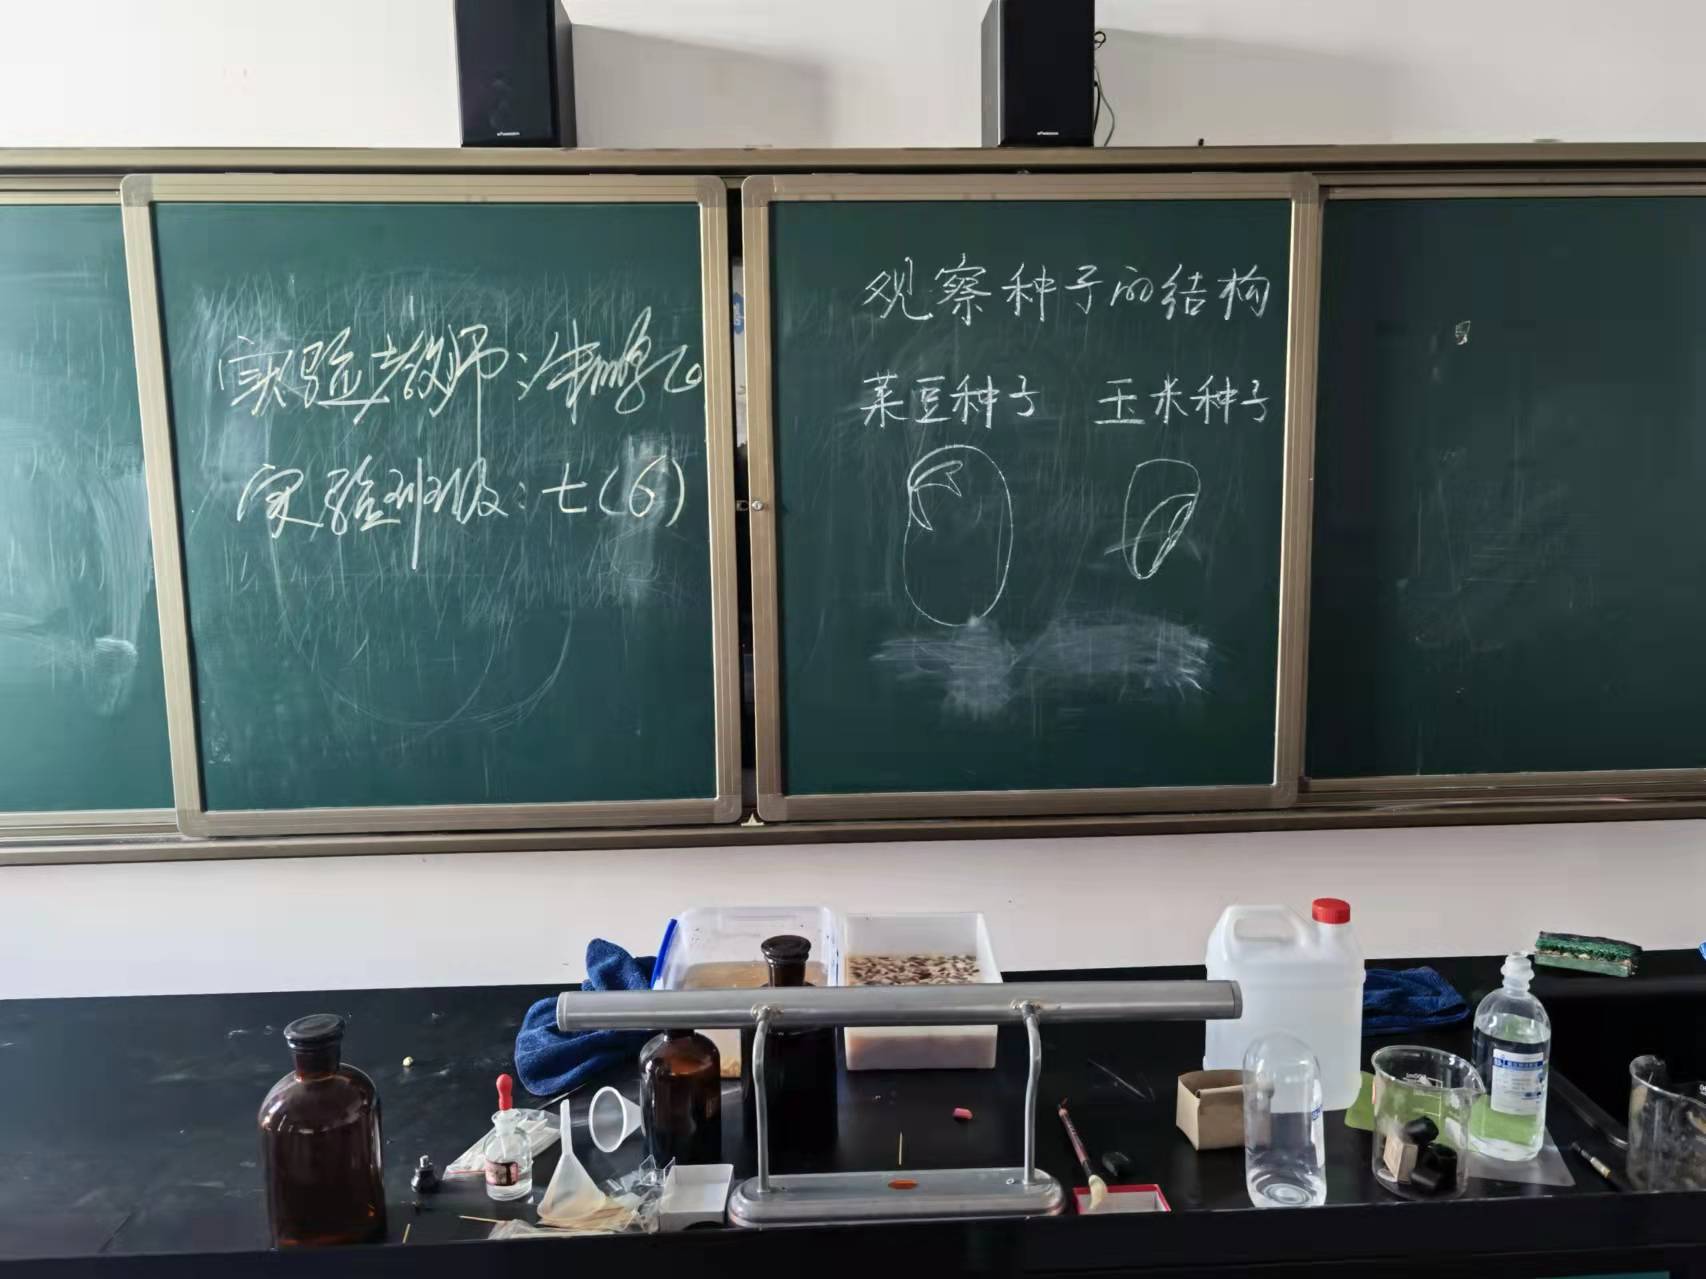 实验教师:朱鹏飞
实验班级:七(6)
观察种子的结构
菜豆种子 玉米种子